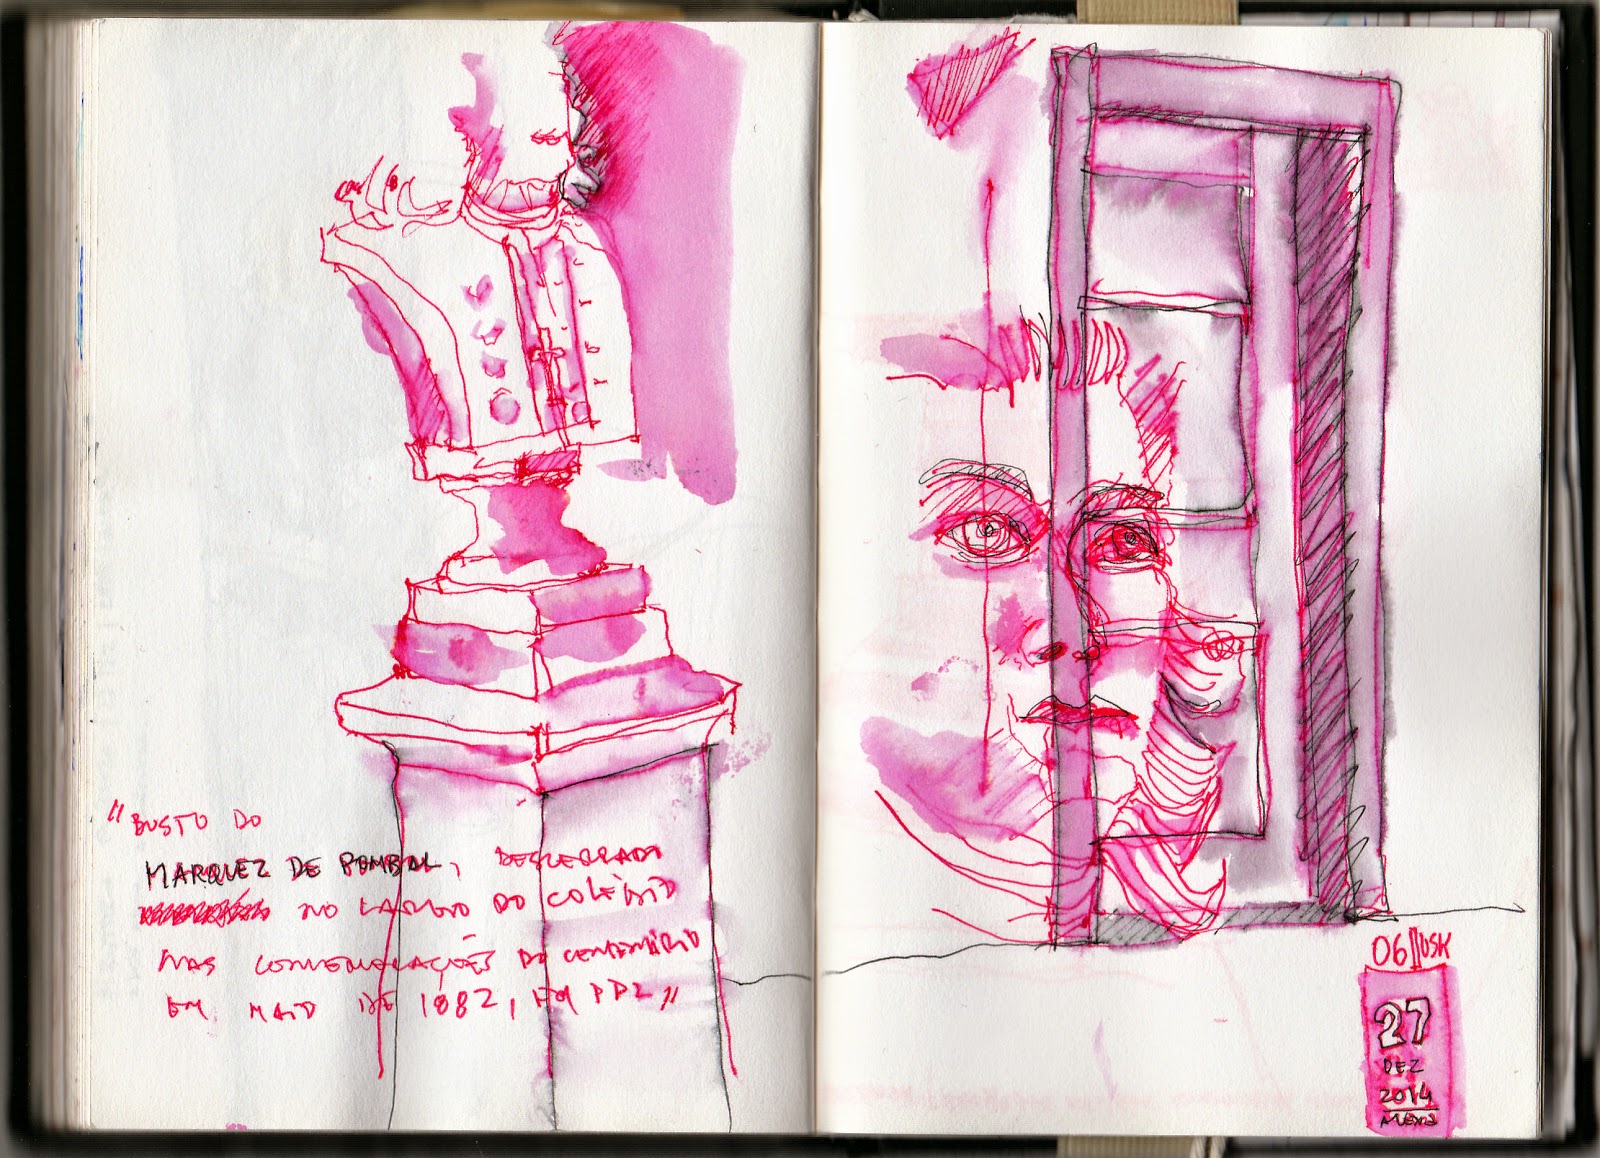 "BUSTO DO
MARQUEZ DE POMBAL, DESCERRADO
NO LARGO DO COLÉGIO
NAS COMEMORAÇÕES DO CENTENÁRIO
EM MAIO DE 1882, EM PDL"
06 USK
27
DEZ
2014